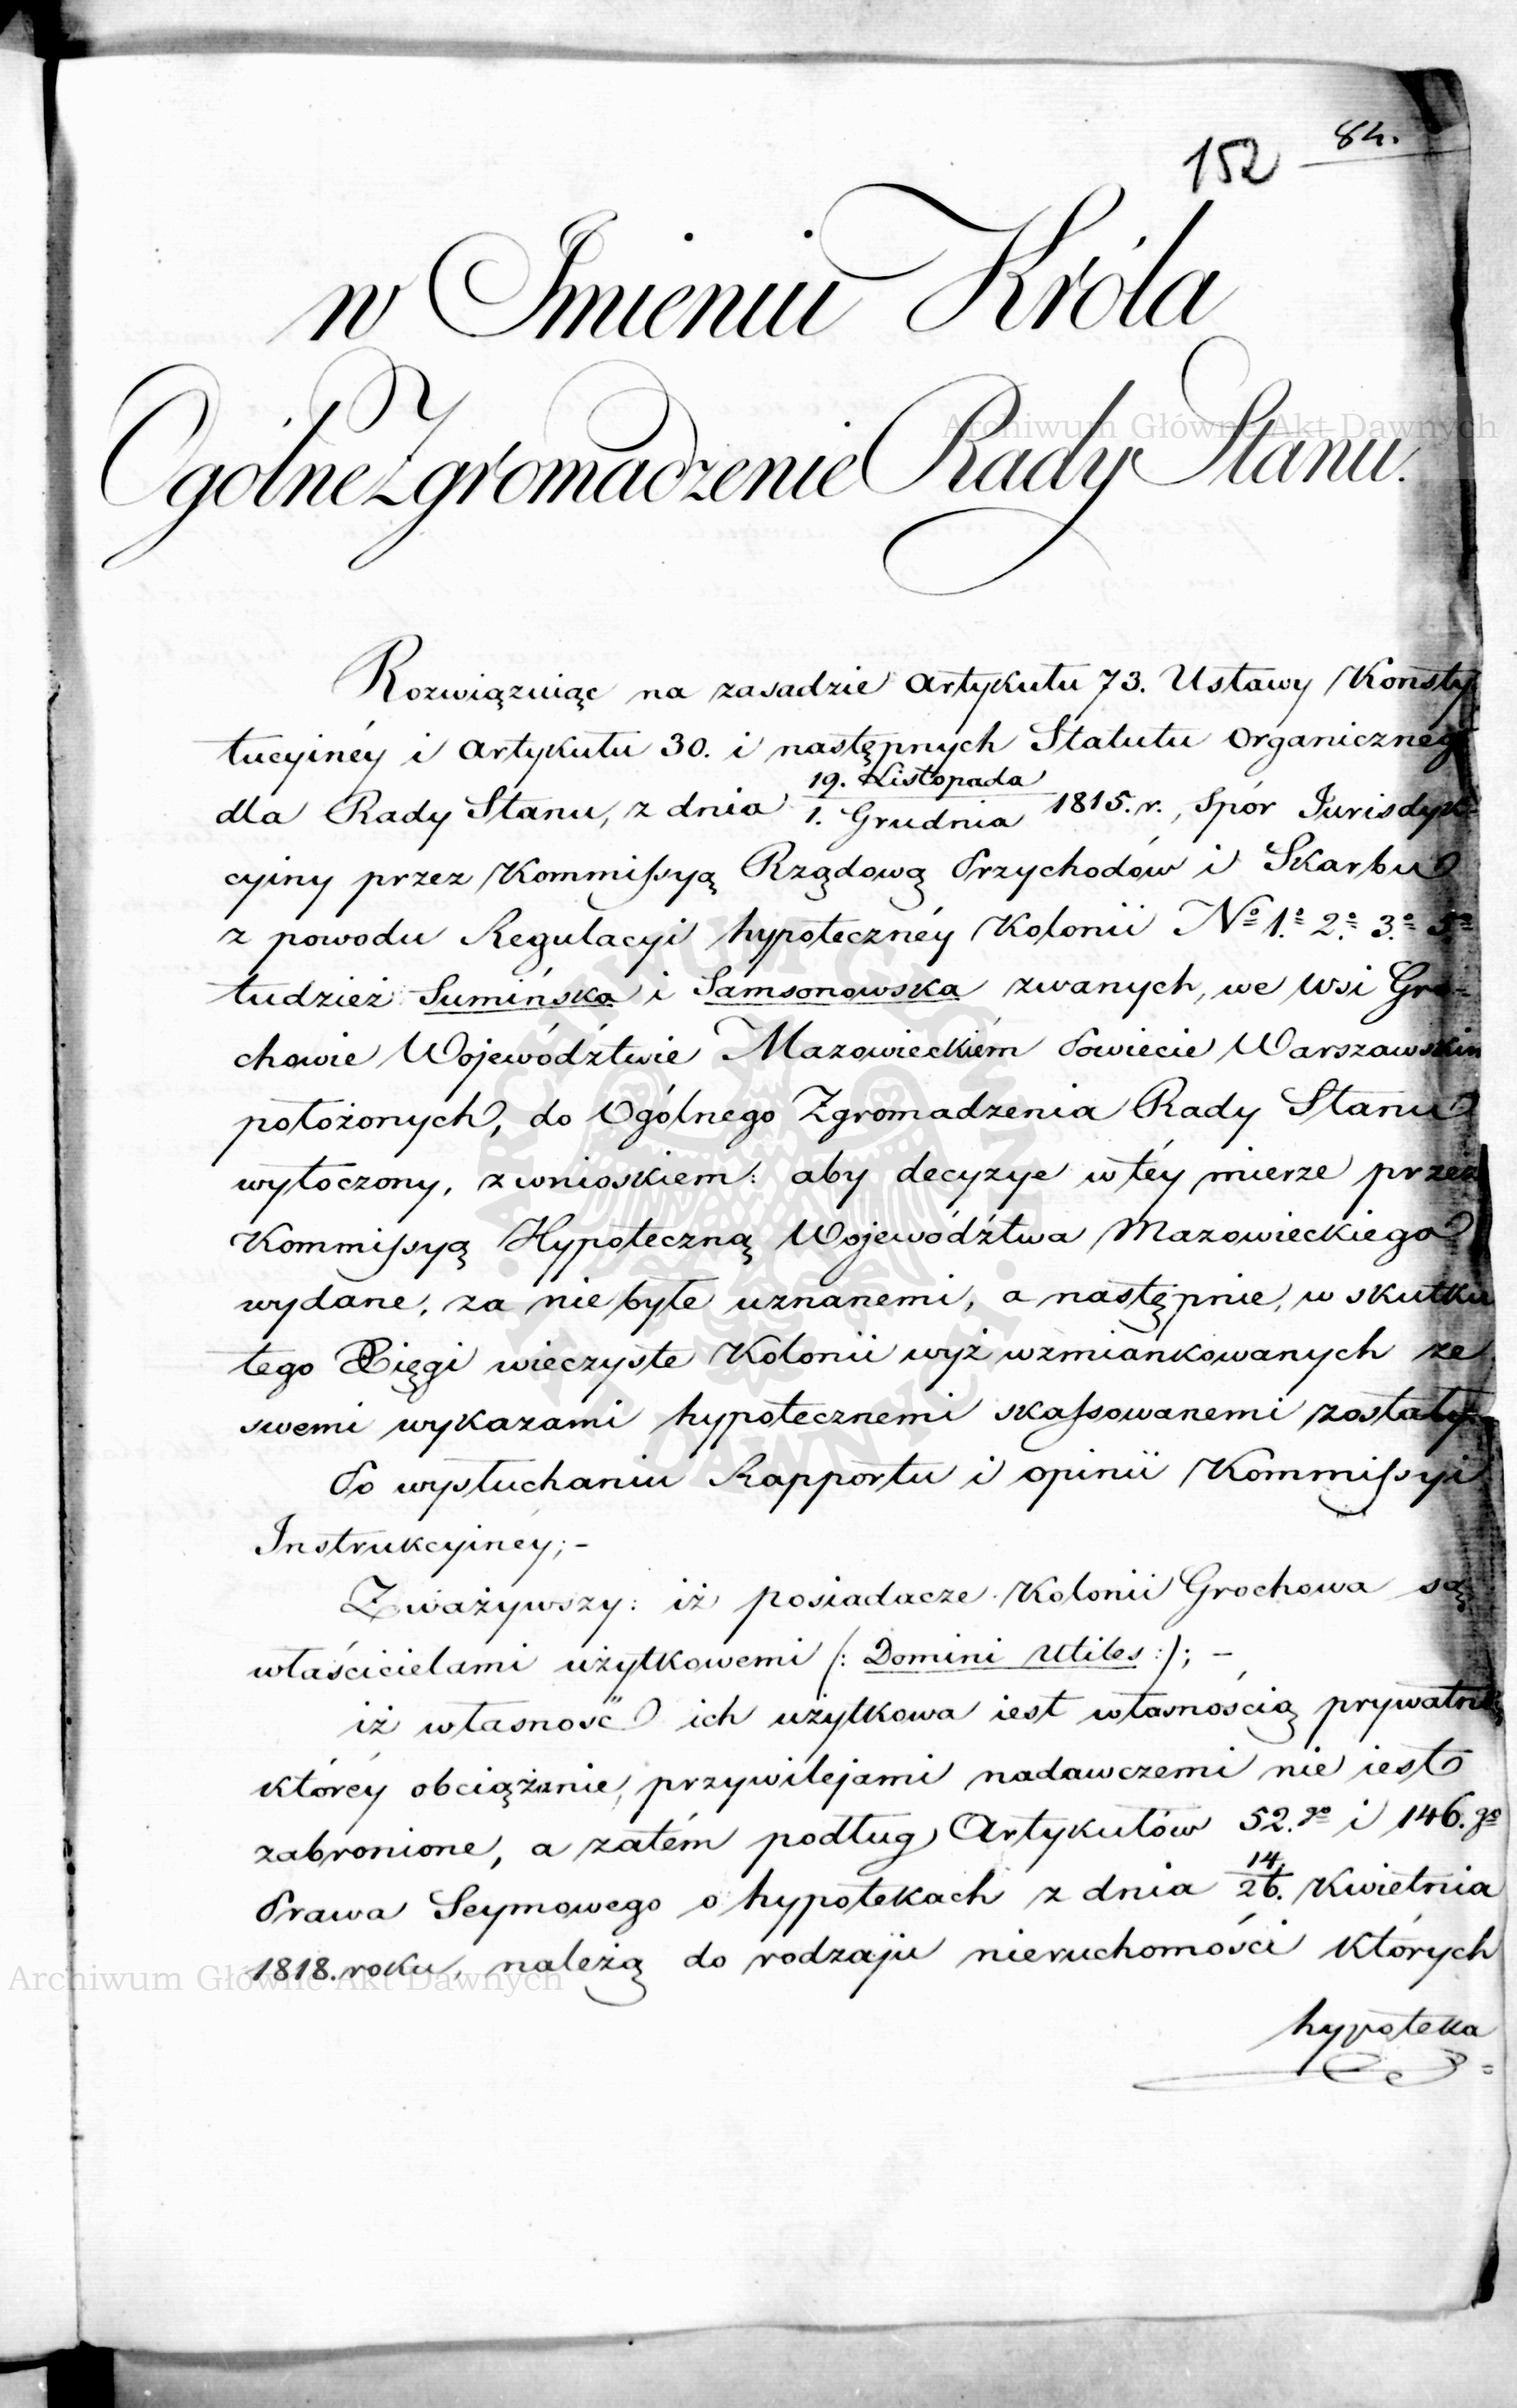 84.
152
w Imieniu Króla
Ogólne Zgromadzenie Rady Stanu.
Rozwiązuiąc na zasadzie Artykułu 73. Ustawy Konsty
tucyinéy i Artykułu 30. i następnych Statutu Organicznego
dla Rady Stanu, z dnia 19. Listopada / 1. Grudnia 1815. r., Spór Jurisdyk-
cyiny przez Kommissyą Rządową Przychodów i Skarbu
z powodu Regulacyi hypotecznéy Kolonii No 1.o 2.o 3.o 5.o
tudzież Sumińska i Samsonowska zwanych, we Wsi Gro-
chowie Województwie Mazowieckiém Powiecie Warszawskim
położonych, do Ogólnego Zgromadzenia Rady Stanu
wytoczony, z wnioskiem: aby decyzye w téy mierze przez
Kommissyą Hypoteczną Województwa Mazowieckiego
wydane, za nie byłe uznanemi, a następnie, w skutku
tego Xięgi wieczyste Kolonii wyż wzmiankowanych ze
swemi wykazami hypotecznemi skassowanemi zostały.
Po wysłuchaniu Rapportu i opinii Kommissyi
Instrukcyinéy; -
Zważywszy: iż posiadacze Kolonii Grochowa są
właścicielami użytkowemi (: Domini Utiles :); -
iż własność ich użytkowa iest własnością prywatną
któréy obciążenie, przywilejami nadawczemi nie iest
zabronione, a zatém podług Artykułów 52.go i 146.go
Prawa Seymowego o hypotekach z dnia 14/26. Kwietnia
1818. roku, należą do rodzaju nieruchomości których
hypoteka
Archiwum Główne Akt Dawnych
ARCHIWUM GŁÓWNE AKT DAWNYCH
Archiwum Główne Akt Dawnych